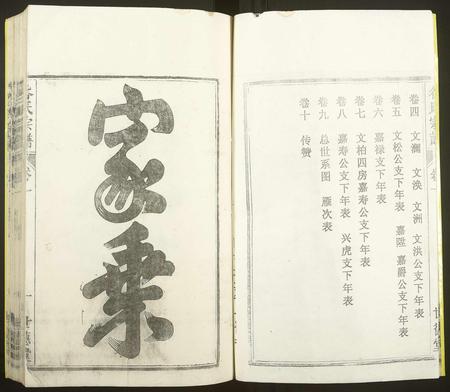 卷四 文澜 文涣 文洲 文洪公支下年表
卷五 文松公支下年表 嘉陞 嘉爵公支下年表
卷六 嘉禄支下年表
卷七 文柏四房嘉寿公支下年表
卷八 嘉寿公支下年表 兴虎支下年表
卷九 总世系图 雁次表
卷十 传赞
家乘
氏宗谱
卷一